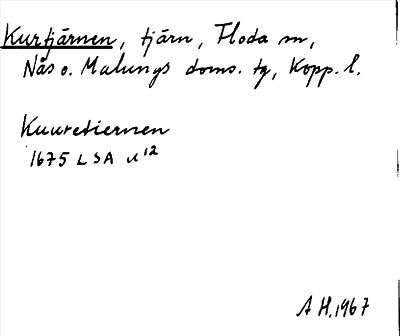 Kurtjärnen, tjärn, Floda sn,
Nås o. Malungs doms. tg, Kopp. l.
Kuuretiernen
1675 LSA u 12
A H. 1967